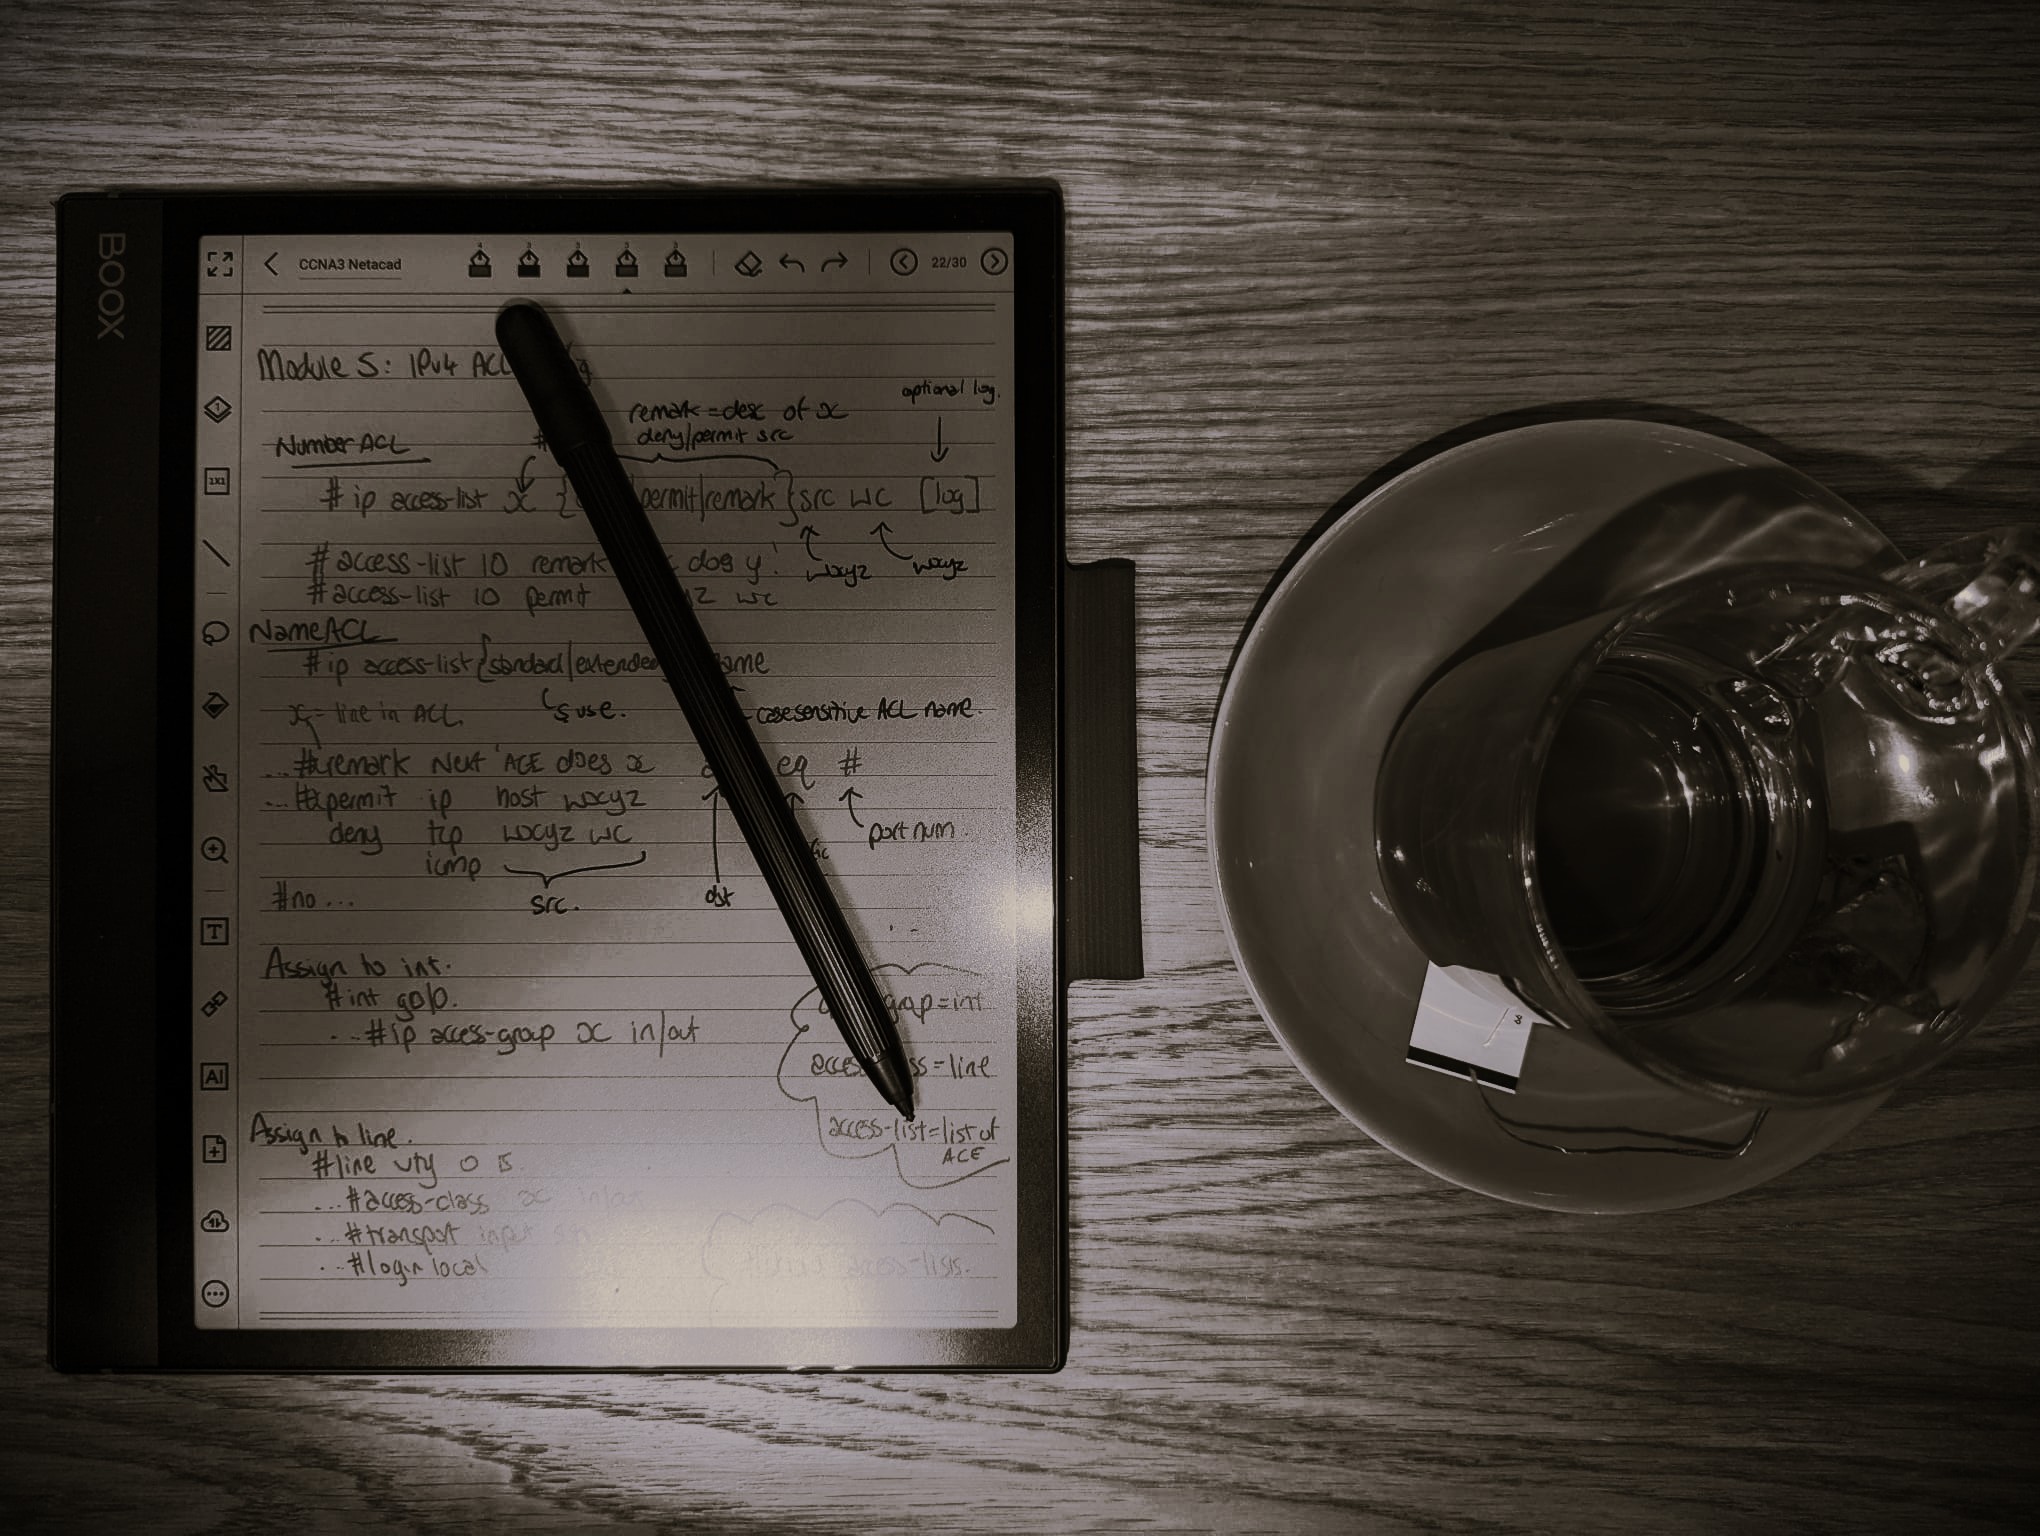 BOOX
CCNA3 Netacad
22/30
Module 5: IPv4 ACL
optional log.
remark = desc of x
deny/permit src
Number ACL
#
# ip access-list x { permit/remark } src wc [log]
wxyz wxyz
# access-list 10 remark dog y'
# access-list 10 permit wc
Name ACL
# ip access-list {standard/extended name
x = line in ACL. use. case sensitive ACL name.
...#x remark Next 'ACE does x eq #
...#x permit ip host wxyz
port num.
deny tcp wxyz wc
icmp
#no ... src. dst
Assign to int.
#int g0/0.
...#ip access-group x in/out
group = int
access = line
access-list = list of
ACE
Assign to line.
#line vty 0 15
...#access-class x in/out
...#transport input
...#login local
access-lists.
AI
T
1X1